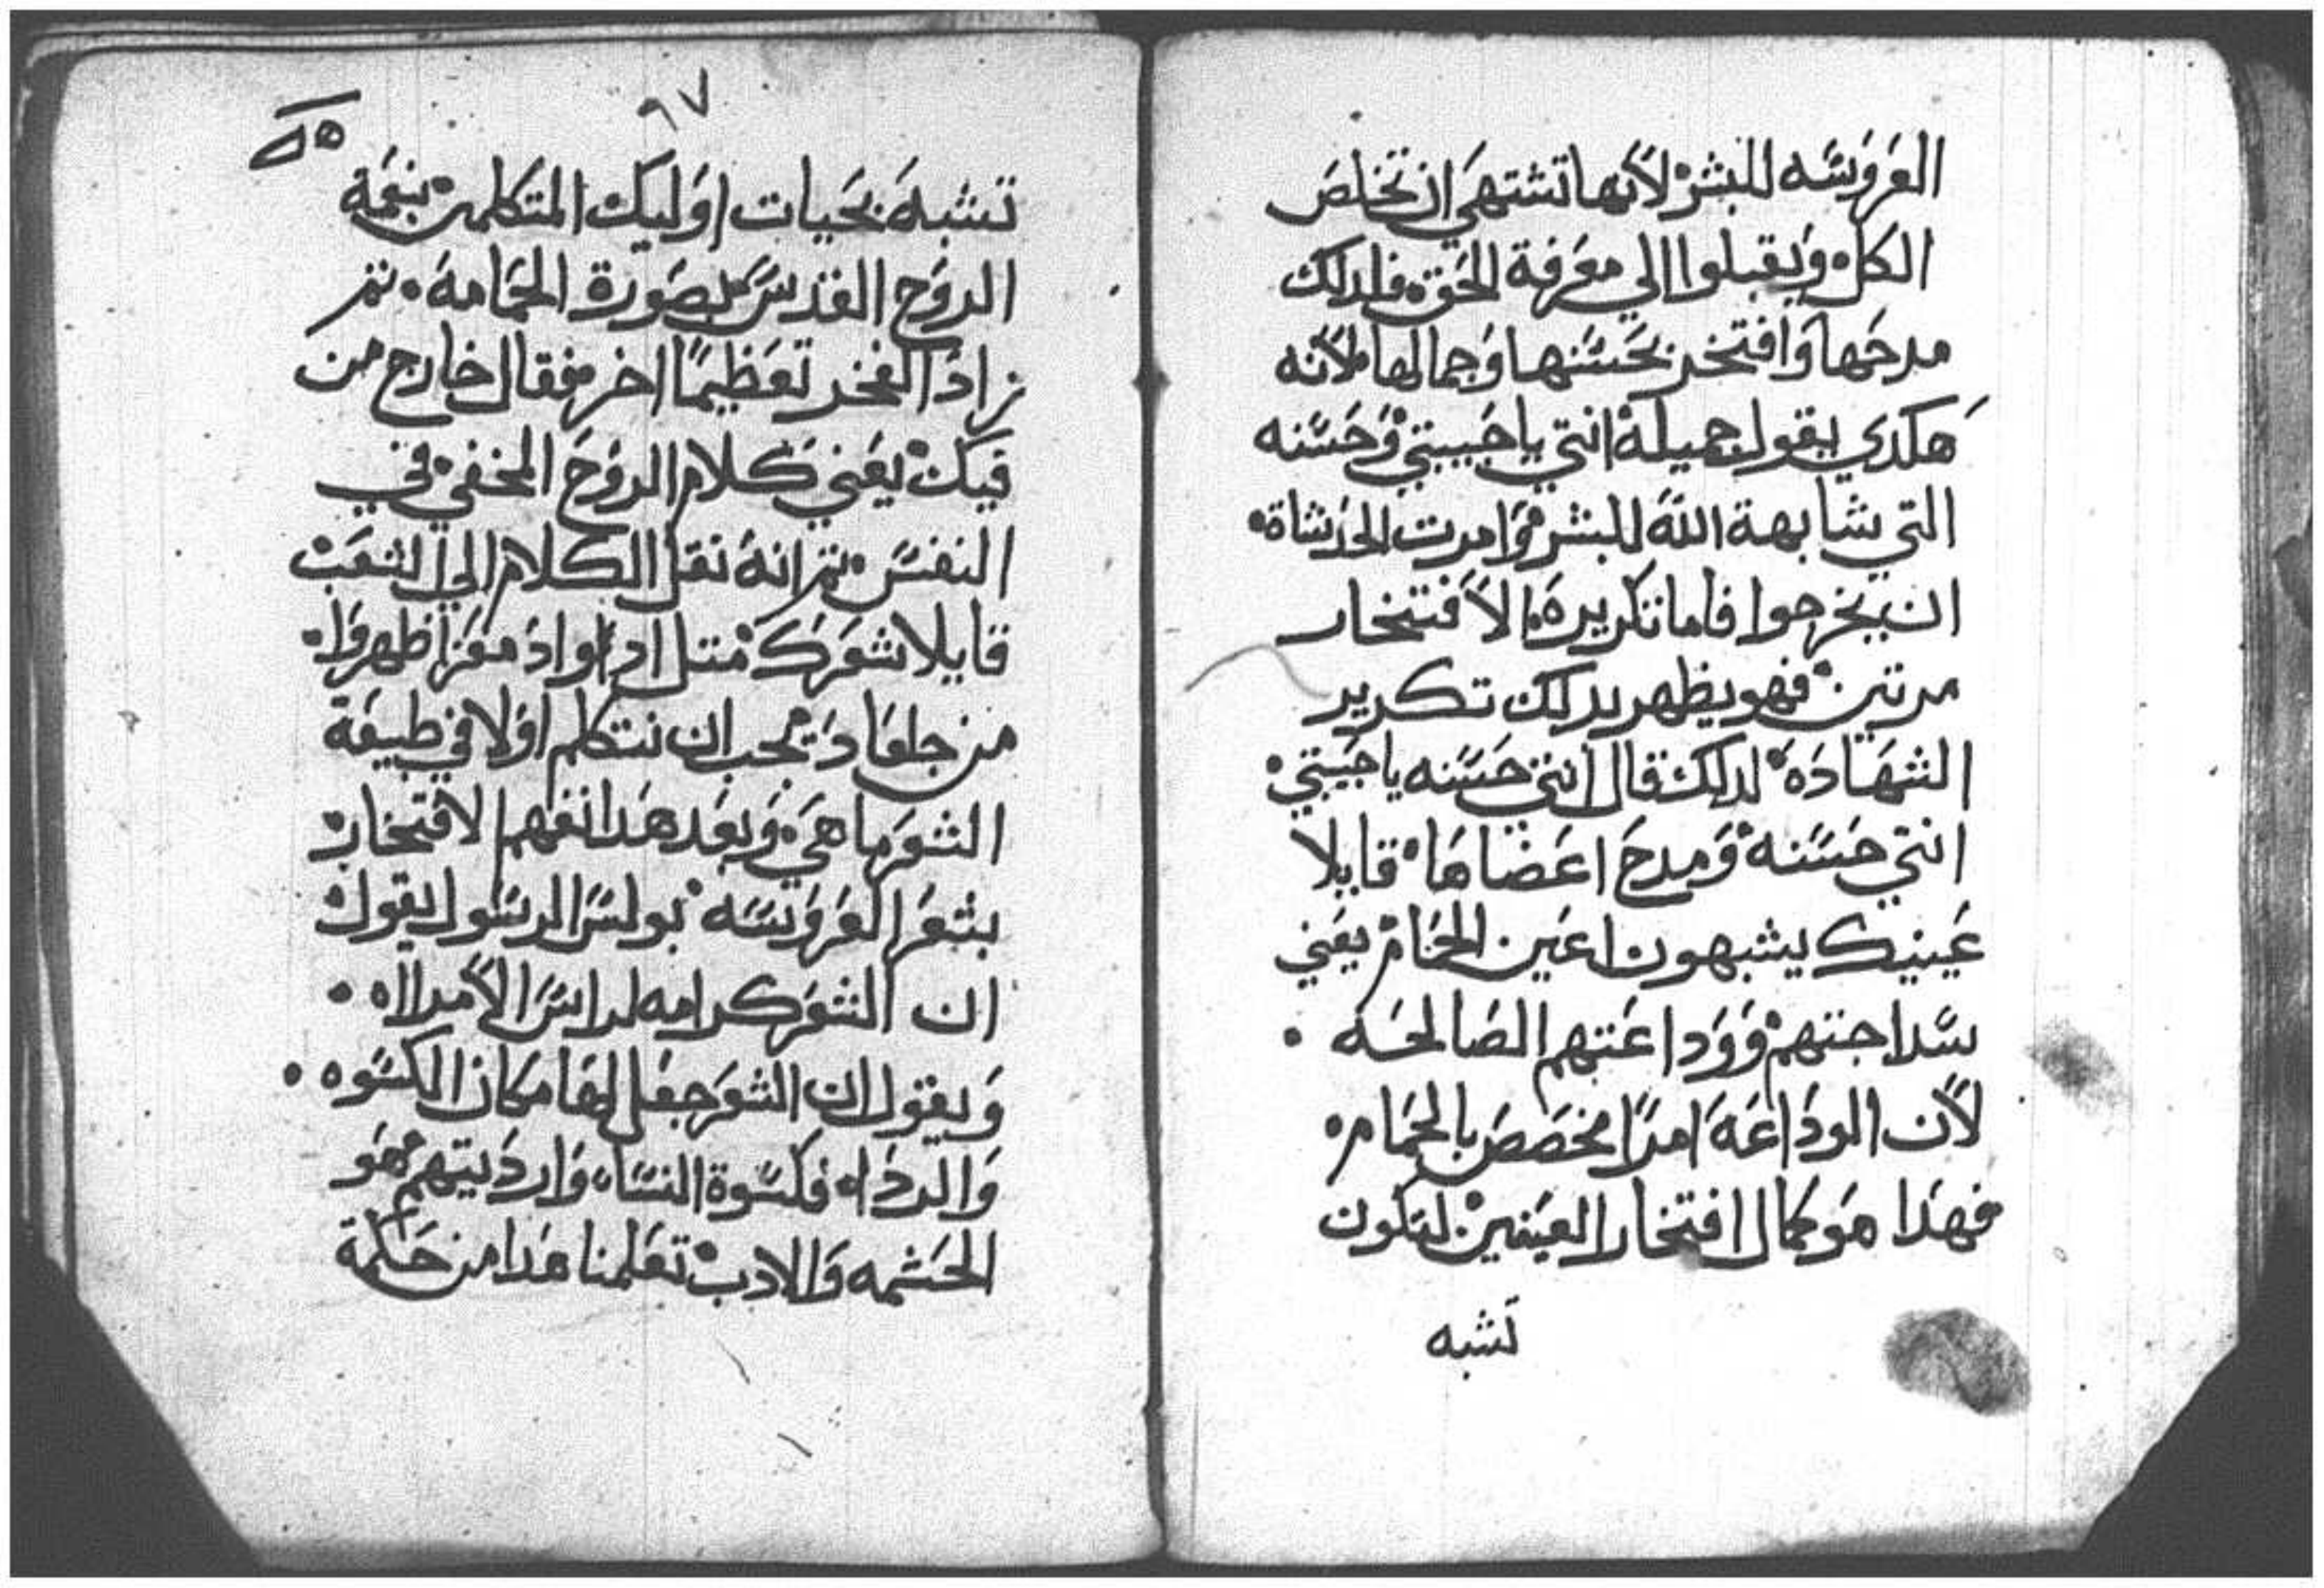 العروسه للبشر لانها تشتهي ان تخلص
الكل ويقبلوا الي معرفة الحق فلدلك
مدحها وافتخر بحسنها وجمالها لانه
هكدي يقول جميلة انتي يا حبيبتي وحسنه
التي شابهة الله للبشر وامرت الحدشاة
ان يخرجوا فاما تكريره الافتخار
مرتين فهو يظهر بدلك تكرير
الشهاده لدلك قال انتي حسنه يا حبيبتي
انتي حسنه ومدح اعضاها قايلا
عينيك يشبهون اعين الحمام يعني
سداجتهم ووداعتهم الصالحه
لان الوداعه امرا مخصص بالحمام
فهدا هو كمال افتخار العينين لتكون
تشبه
٩٧
تشبه بحيات اوليك المتكلمين بنعمة
الروح القدس بصورة الحمامه ثم
زاد الفخر تعظيما اخر فقال خارج من
فيك يعني كلام الروح المخفي في
النفس ثم انه نقل الكلام الي الشعب
قايلا شعرك مثل ادواد معز اظهروا
من جلعاد يجب ان نتكلم اولا في طبيعة
الشعر ما هي وبعد هدا نفهم الافتخار
بشعر العروسه بولس الرسول يقول
ان الشعر كرامه لراس الامراه
ويقول ان الشعر جعل لها مكان الكسوه
والرداء فكسوة النساء وارديتهم هو
الحشمه والادب تعلمنا هدا من حكمة